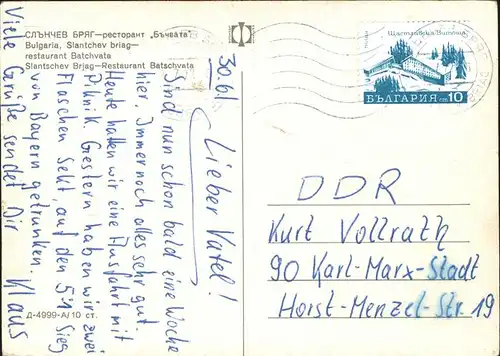 СЛЪНЧЕВ БРЯГ—ресторант „Бъчвата"
Bulgaria, Slantchev briag—
restaurant Batchvata
Slantschev Brjag—Restaurant Batschvata
30.6.
Lieber Vatel!
Sind nun schon bald eine Woche
hier. Immer noch alles sehr gut.
Heute hatten wir eine Ausfahrt mit
Piknik. Gestern haben wir zwei
Flaschen Sekt, auf den 5:1 Sieg
von Bayern getrunken.
Viele Grüße sendet Dir Klaus
Д-4999-А/10 ст.
Щастливеца/Витоша
БЪЛГАРИЯ ст. 10
DDR
Kurt Vollrath
90 Karl-Marx-Stadt
Horst-Menzel-Str. 19